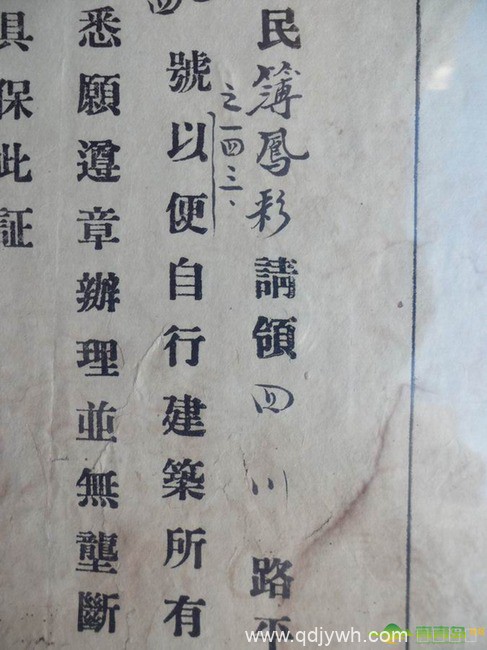 民簿鳳彩請領四川路平
號以便自行建築所有
之一四三、
悉願遵章辦理並無壟斷
具保此証
www.qdjywh.com